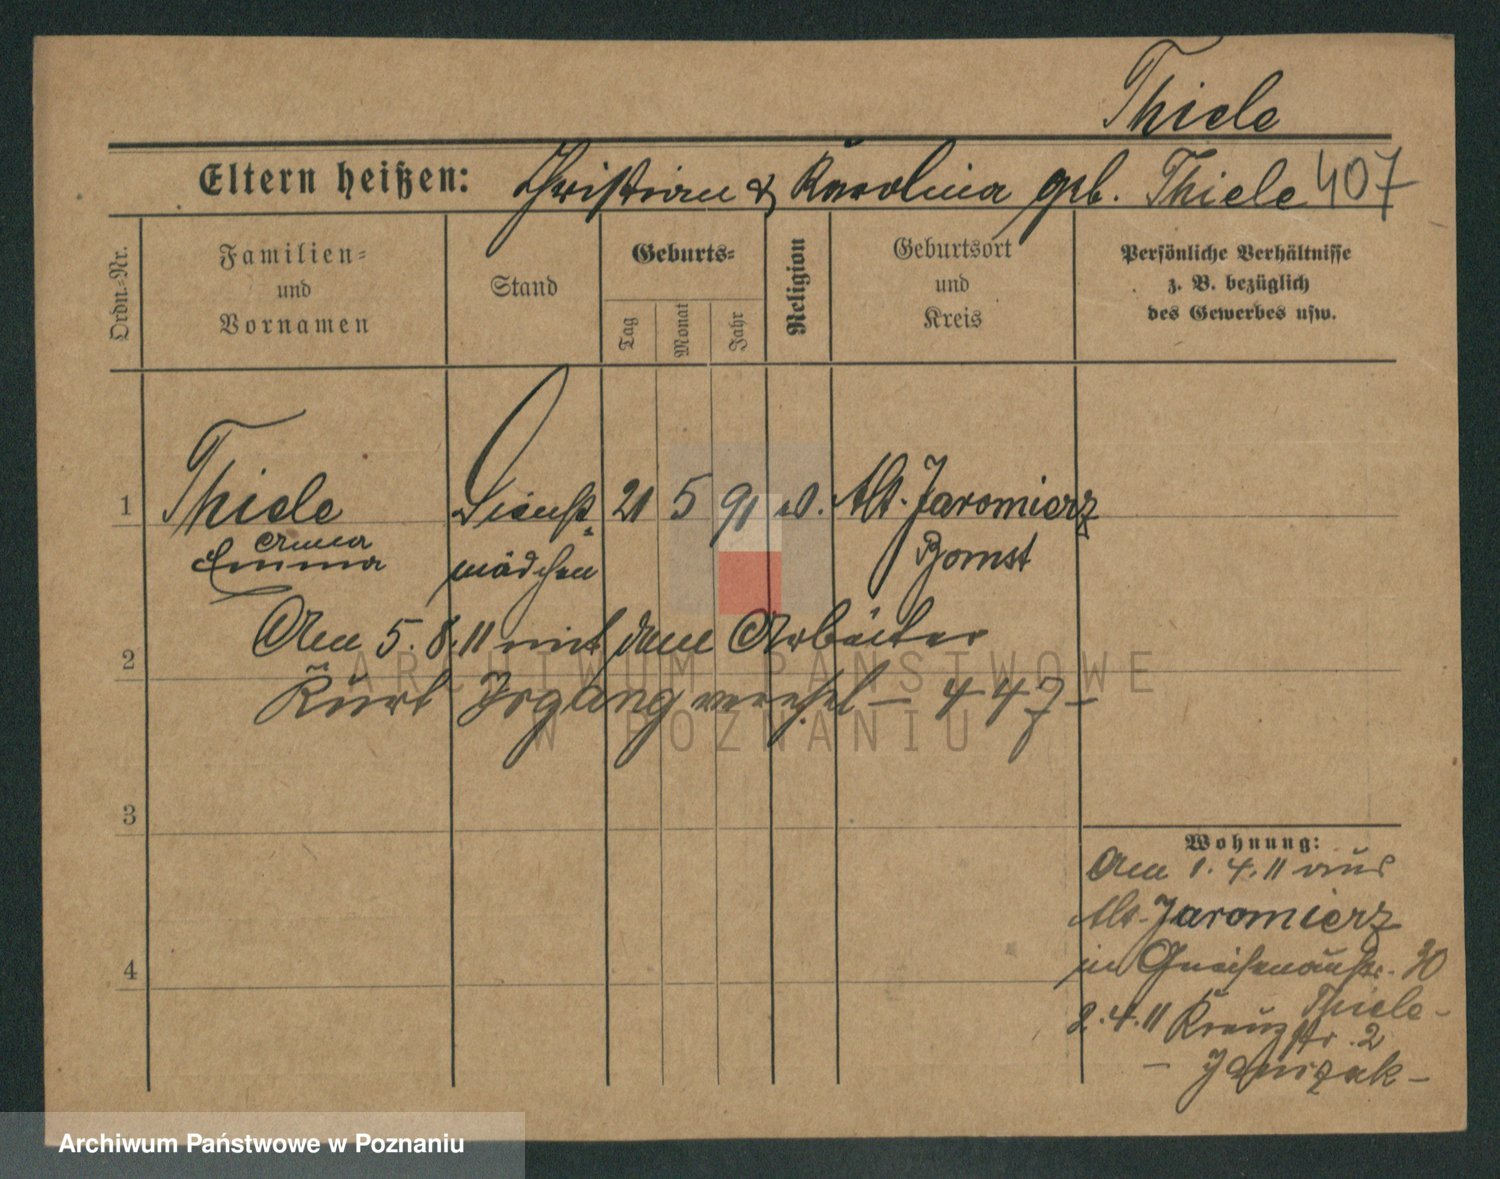 Thiele
Eltern heißen: Christian & Karolina geb. Thiele 407
Ordn.-Nr.
Familien-
und
Vornamen
Stand
Geburts-
Tag
Monat
Jahr
Religion
Geburtsort
und
Kreis
Persönliche Verhältnisse
z. B. bezüglich
des Gewerbes usw.
1 Thiele Dienst- 21 5 91 ev. Alt-Jaromierz
Anna
Emma mädchen Bomst
Am 5.8.11 mit dem Arbeiter
2
Kurt Irgang verehel – 447 –
ARCHIWUM PAŃSTWOWE
W POZNANIU
3
Wohnung:
Am 1.4.11 aus
Alt-Jaromierz
in Gneisenaustr. 30
4
Thiele –
2.4.11 Kreuzstr. 2
–
Archiwum Państwowe w Poznaniu